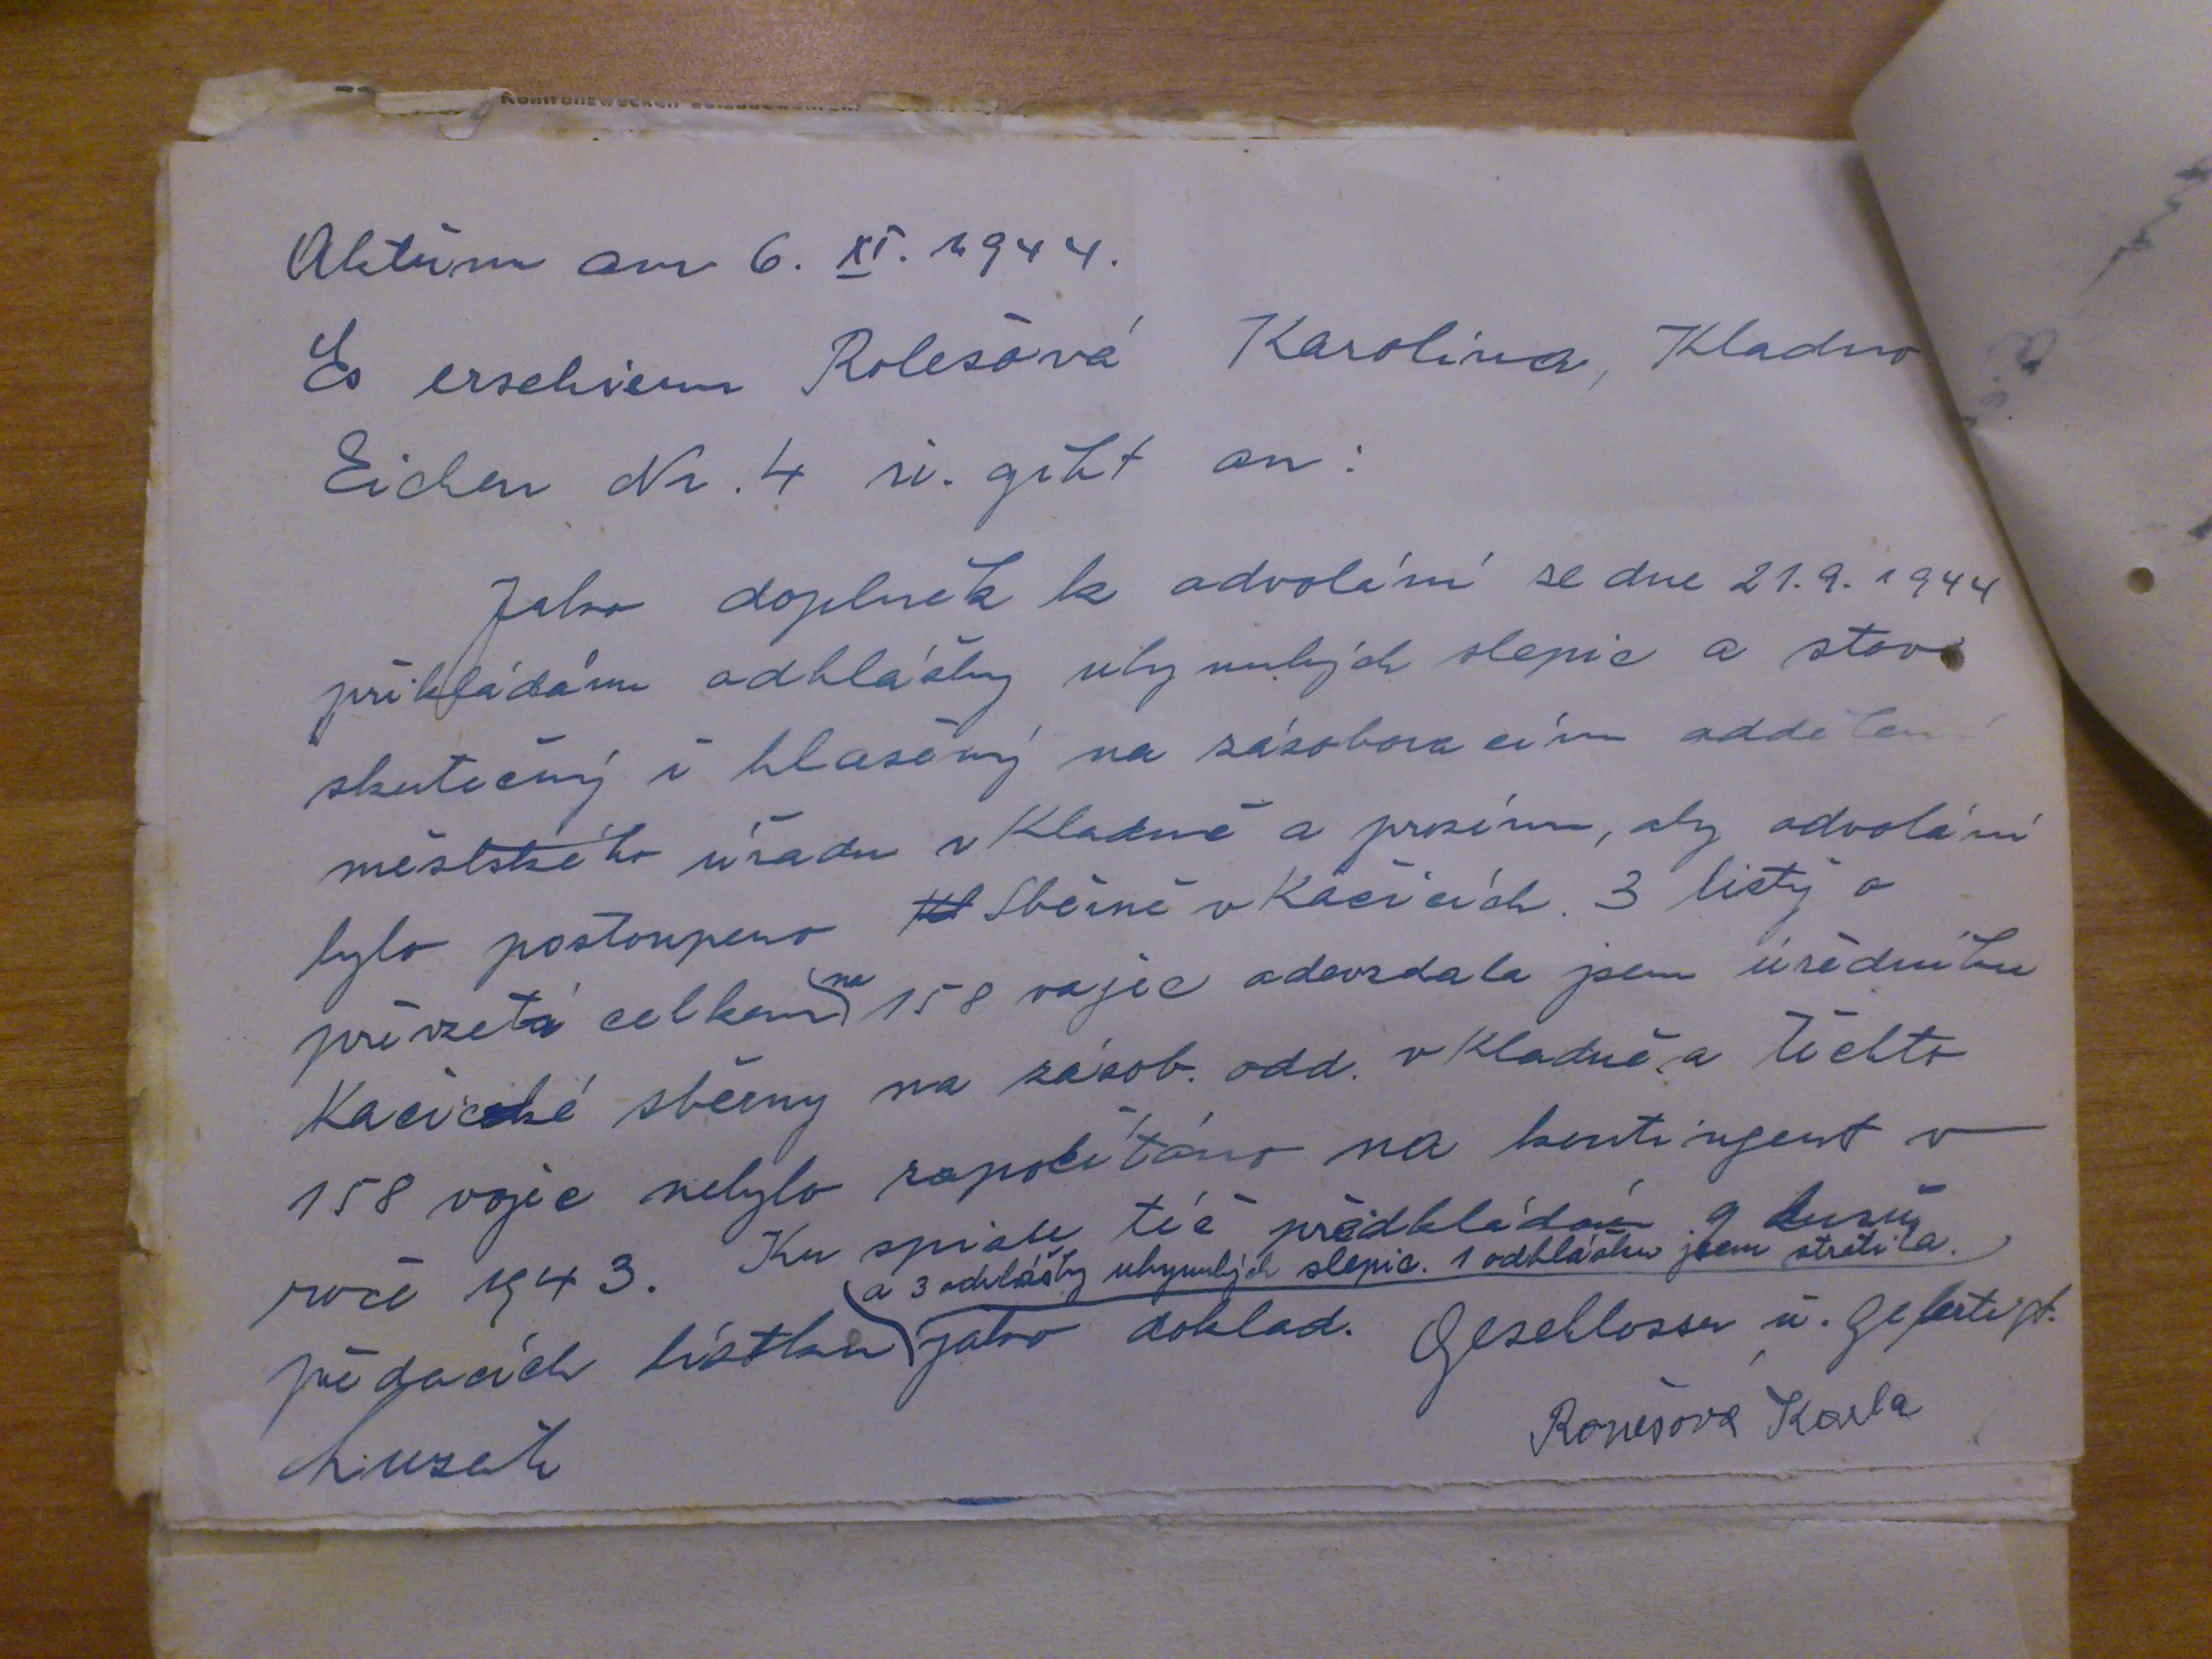 Aktum am 6. XI. 1944.
Es erschien Rolešová Karolina, Kladno
Eichen Nr. 4 u. gibt an:
Jako doplněk k odvolání ze dne 21.9.1944
přikládám odhlášky uhynulých slepic a stav
skutečný i hlášený na zásobovacím oddělení
městského úřadu v Kladně a prosím, aby odvolání
bylo postoupeno Sběrně v Kačicích. 3 listy o
převzetí celkem na 158 vajec odevzdala jsem úředníku
Kačické sběrny na zásob. odd. v Kladně a těchto
158 vajec nebylo započítáno na kontingent v
roce 1943. Ku spisu též předkládám 9 kusů
a 3 odhlášky uhynulých slepic. 1 odhlášku jsem ztratila.
předacích lístků jako doklad. Geschlossen u. gefertigt.
Ronešová Karla